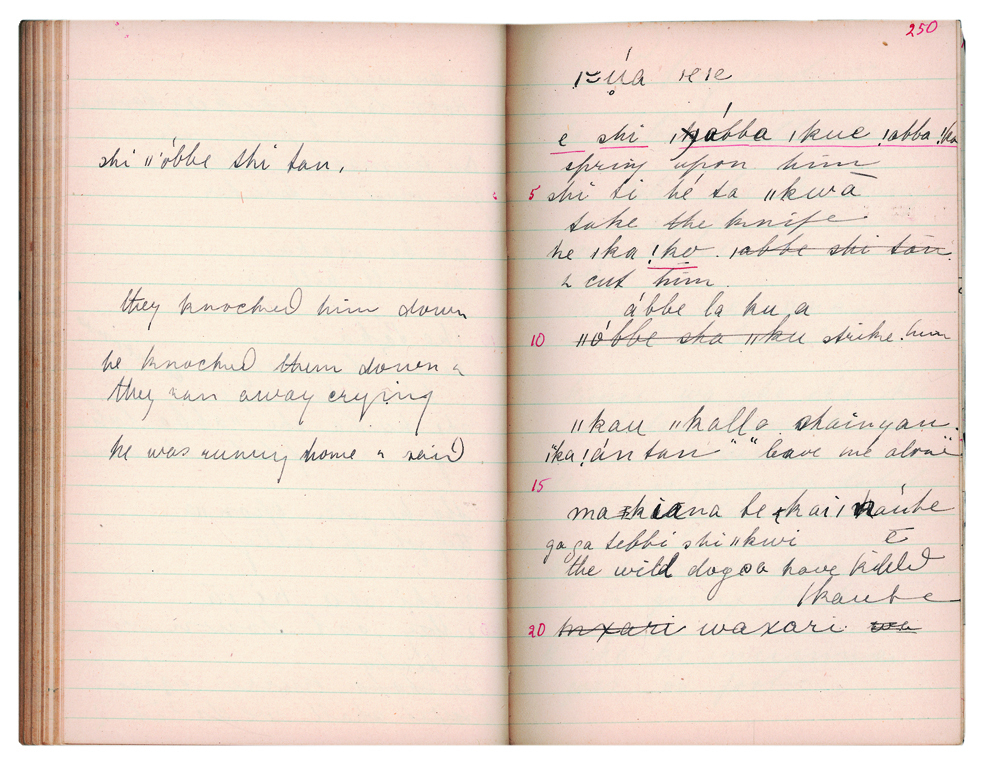 shi ǁóbbe shi tan,
they knocked him down
he knocked them down &
they ran away crying
he was running home & said
250
e shi ǀkue ǃabba ǃka
spring upon him
5 shi ti hé ta ǁkwā
take the knife
he ǀka ǃko. ǀabbe shi tan
& cut him.
ábbe la ku a
10 ǁóbbe sha ǁku strike him
ǁkau ǁkalla shainyan.
ǃántan " " leave me alone"
15
gaga tebbi shi ǁkwi ē
the wild dogs have killed
ǀkaube
20 mxari waxari.